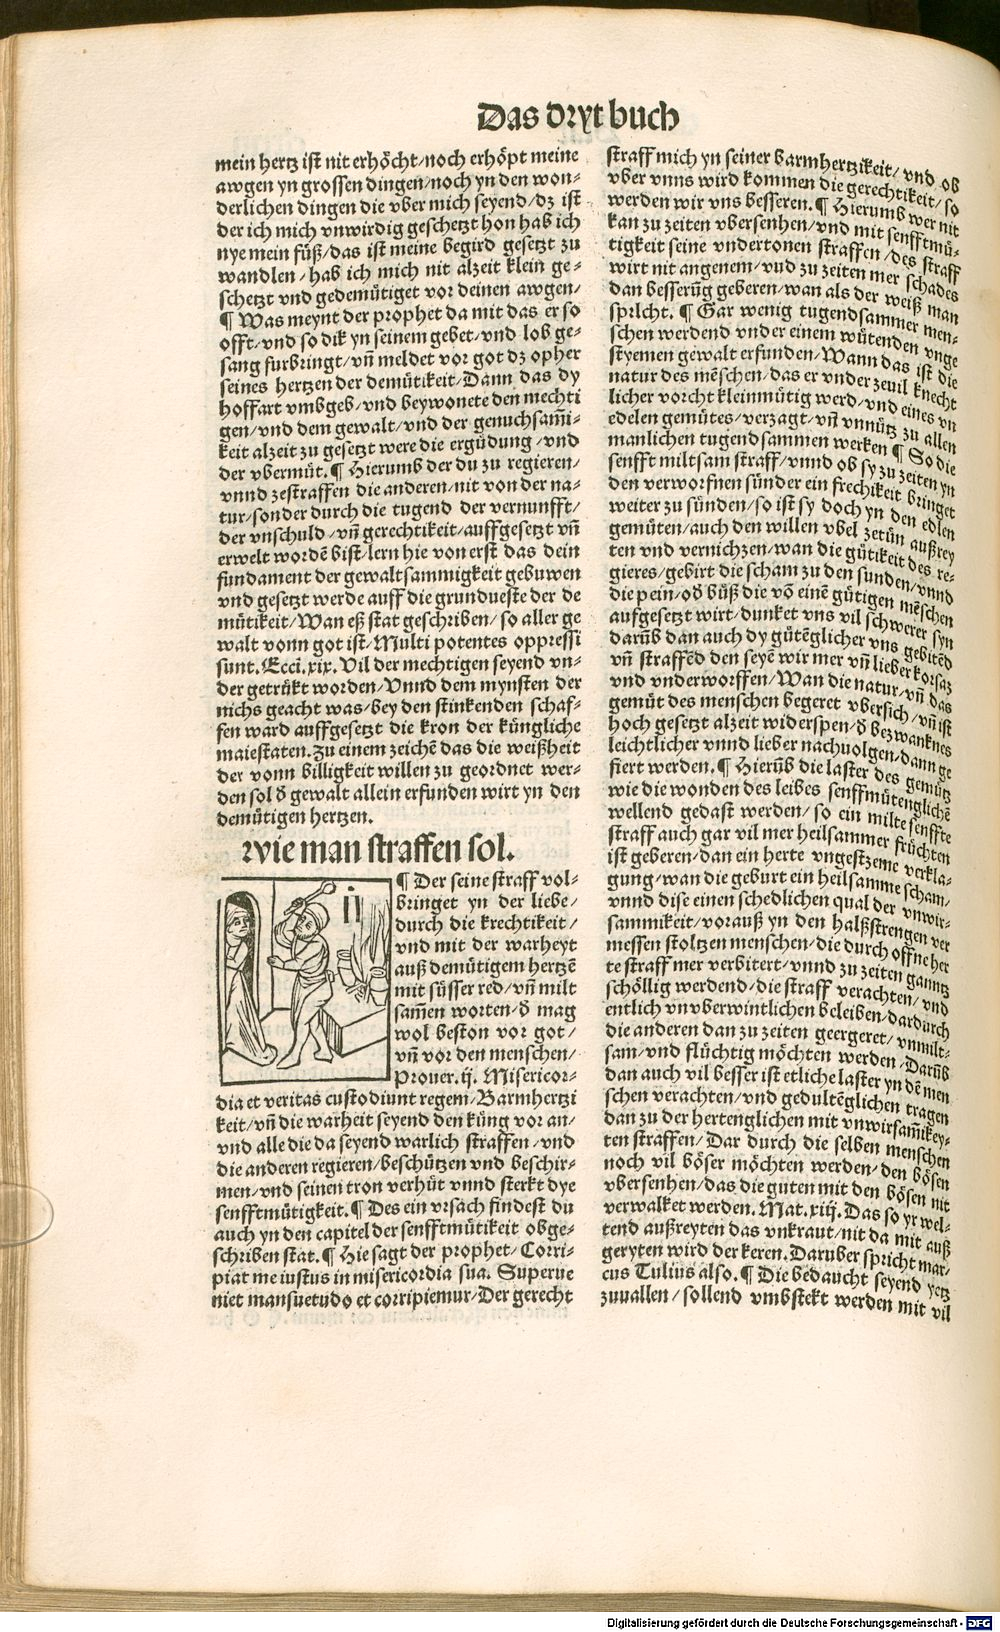 Das dryt buch
mein hertz ist nit erhöcht/noch erhöpt meine
awgen yn grossen dingen/noch yn den won-
derlichen dingen die vber mich seyend/dz ist
der ich mich vnwirdig geschetzt hon hab ich
nye mein füß/das ist meine begird gesetzt zu
wandlen/hab ich mich nit alzeit klein ge-
schetzt vnd gedemütiget vor deinen awgen/
¶ Was meynt der prophet da mit das er so
offt/vnd so dik yn seinem gebet/vnd lob ge-
sang furbringt/vñ meldet vor got dz opher
seines hertzen der demütikeit/Dann das dy
hoffart vmbgeb/vnd beywonete den mechti
gen/vnd dem gewalt/vnd der genuchsam̄i-
keit alzeit zu gesetzt were die ergüdung/vnd
der vbermüt. ¶ Hierumb der du zu regieren/
vnnd zestraffen die anderen/nit von der na-
tur/sonder durch die tugend der vernunfft/
der vnschuld/vñ gerechtikeit/auffgesetzt vñ
erwelt wordē bist/lern hie von erst das dein
fundament der gewaltsammigkeit gebuwen
vnd gesetzt werde auff die grundueste der de
mütikeit/Wan eß stat geschriben/so aller ge
walt vonn got ist/Multi potentes oppressi
sunt.Ecci.xix.Vil der mechtigen seyend vn-
der getrükt worden/Vnnd dem mynsten der
nichs geacht was/bey den stinkenden schaf-
fen ward auffgesetzt die kron der küngliche
maiestaten.Zu einem zeichē das die weißheit
der vonn billigkeit willen zu geordnet wer-
den sol d̄ gewalt allein erfunden wirt yn den
demütigen hertzen.
wie man straffen sol.
¶ Der seine straff vol-
bringet yn der liebe/
durch die krechtikeit/
vnd mit der warheyt
auß demütigem hertzē
mit süsser red/vñ milt
sam̄en worten/d̄ mag
wol beston vor got/
vñ vor den menschen/
Prouer.ij. Misericor-
dia et veritas custodiunt regem/Barmhertzi
keit/vñ die warheit seyend den küng vor an/
vnd alle die da seyend warlich straffen/vnd
die anderen regieren/beschützen vnd beschir-
men/vnd seinen tron verhüt vnnd sterkt dye
senfftmütigkeit. ¶ Des ein vrsach findest du
auch yn den capitel der senfftmütikeit obge-
schriben stat. ¶ Hie sagt der prophet/Corri-
piat me iustus in misericordia sua. Superue
niet mansuetudo et corripiemur/Der gerecht
straff mich yn seiner barmhertzikeit/vnd ob
vber vnns wird kommen die gerechtikeit/so
werden wir vns besseren. ¶ Hierumb wer nit
kan zu zeiten vbersenhen/vnd mit senfftmü-
tigkeit seine vndertonen straffen/des straff
wirt nit angenem/vnd zu zeiten mer schades
dan besserūg geberen/wan als der weiß man
sprlcht. ¶ Gar wenig tugendsammer men-
schen werdend vnder einem wütenden vnge
styemen gewalt erfunden/Wann das ist die
natur des mēschen/das er vnder zeuil knecht
licher vorcht kleinmütig werd/vnd eines vn
edelen gemütes/verzagt/vñ vnnütz zu allen
manlichen tugend sammen werken ¶ So die
senfft miltsam straff/vnnd ob sy zu zeiten yn
den verworfnen sünder ein frechikeit bringet
weiter zu sünden/so ist sy doch yn den edlen
gemüten/auch den willen vbel zetün außrey
ten vnd vernichzen/wan die gütikeit des re-
gieres/gebirt die scham zu den sunden/vnnd
die pein/od̄ büß die vō einē gütigen mēschen
aufgesetzt wirt/dunket vns vil schwerer syn
darūb dan auch dy gütēglicher vns gebitēd
vñ straffēd den seyē wir mer vñ lieber korsaz
vnd vnderworffen/Wan die natur/vñ das
gemüt des menschen begeret vbersich/vñ ist
hoch gesetzt alzeit widerspen/d̄ bezwanknes
leichtlicher vnnd lieber nachuolgen/dann ge
fiert werden. ¶ Hierūb die laster des gemütz
wie die wonden des leibes senffmütenglichē
wellend gedast werden/so ein milte senffte
straff auch gar vil mer heilsammer früchten
ist geberen/dan ein herte vngestzeme verkla-
gung/wan die geburt ein heilsamme scham/
vnnd dise einen schedlichen qual der vnwir-
sammikeit/vorauß yn den halßstrengen ver
messen stoltzen menschen/die durch offne her
te straff mer verbitert/vnnd zu zeiten ganntz
schöllig werdend/die straff verachten/vnd
entlich vnvberwintlichen beleiben/dardurch
die anderen dan zu zeiten geergeret/vnmilt-
sam/vnd flüchtig möchten werden/Darūb
dan auch vil besser ist etliche laster yn dē men
schen verachten/vnd gedultēglichen tragen
dan zu der hertenglichen mit vnwirsam̄ikey-
ten straffen/Dar durch die selben menschen
noch vil böser möchten werden/den bösen
vbersenhen/das die guten mit den bösen nit
verwalket werden. Mat.xiij. Das so yr wel-
tend außreyten das vnkraut/nit da mit auß
geryten wird der keren. Daruber spricht mar-
cus Tulius also. ¶ Die bedaucht seyend yetz
zuuallen/sollend vmbstekt werden mit vil
Digitalisierung gefördert durch die Deutsche Forschungsgemeinschaft - DFG